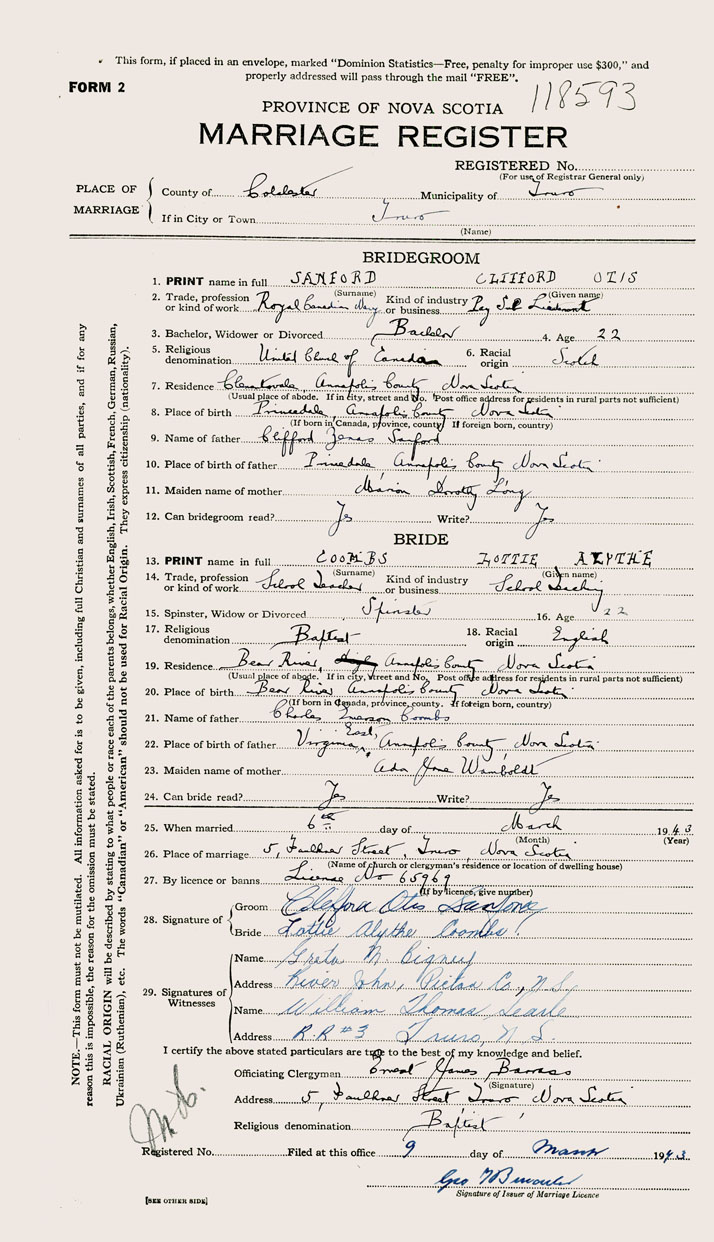 This form, if placed in an envelope, marked "Dominion Statistics—Free, penalty for improper use $300," and
properly addressed will pass through the mail "FREE".
FORM 2
118593
PROVINCE OF NOVA SCOTIA
MARRIAGE REGISTER
REGISTERED No.
(For use of Registrar General only)
PLACE OF MARRIAGE
County of Colchester Municipality of Truro
If in City or Town Truro
(Name)
BRIDEGROOM
1. PRINT name in full SANFORD CLIFFORD OTIS
(Surname) (Given name)
2. Trade, profession or kind of work Royal Canadian Navy Kind of industry or business Lieutenant
3. Bachelor, Widower or Divorced Bachelor 4. Age 22
5. Religious denomination United Church of Canada 6. Racial origin Scotch
7. Residence Clementsvale, Annapolis County Nova Scotia
(Usual place of abode. If in city, street and No. Post office address for residents in rural parts not sufficient)
8. Place of birth Princedale, Annapolis County Nova Scotia
(If born in Canada, province, county. If foreign born, country)
9. Name of father Clifford Sanford
10. Place of birth of father Princedale Annapolis County Nova Scotia
11. Maiden name of mother Marion Dorothy Long
12. Can bridegroom read? Yes Write? Yes
BRIDE
13. PRINT name in full COOMBS LOTTIE ALYTHE
(Surname) (Given name)
14. Trade, profession or kind of work School Teacher Kind of industry or business School Teaching
15. Spinster, Widow or Divorced Spinster 16. Age 22
17. Religious denomination Baptist 18. Racial origin English
19. Residence Bear River, Annapolis County Nova Scotia
(Usual place of abode. If in city, street and No. Post office address for residents in rural parts not sufficient)
20. Place of birth Bear River Annapolis County Nova Scotia
(If born in Canada, province, county. If foreign born, country)
21. Name of father Charles Coombs
22. Place of birth of father Virginia East, Annapolis County Nova Scotia
23. Maiden name of mother Ada Jane Wamboldt
24. Can bride read? Yes Write? Yes
25. When married 6th day of March 1943
(Month) (Year)
26. Place of marriage 5, Faulkner Street, Truro, Nova Scotia
(Name of church or clergyman's residence or location of dwelling house)
27. By licence or banns License No 65969
(If by licence, give number)
28. Signature of
Groom Clifford Otis Sanford
Bride Lottie Alythe Coombs.
29. Signatures of Witnesses
Name Greta M. Bigney
Address River John, Pictou Co., N.S.
Name William Thomas Searle
Address R.R #3 Truro, N.S.
I certify the above stated particulars are true to the best of my knowledge and belief.
Officiating Clergyman Ernest James Barrass
(Signature)
Address 5, Faulkner Street Truro Nova Scotia
Religious denomination Baptist
Registered No. Filed at this office 9 day of March 1943
Geo
Signature of Issuer of Marriage Licence
[SEE OTHER SIDE]
NOTE.—This form must not be mutilated. All information asked for is to be given, including full Christian and surnames of all parties, and if for any
reason this is impossible, the reason for the omission must be stated.
RACIAL ORIGIN will be described by stating to what people or race each of the parents belongs, whether English, Irish, Scottish, French, German, Russian,
Ukrainian (Ruthenian), etc. The words "Canadian" or "American" should not be used for Racial Origin. They express citizenship (nationality).